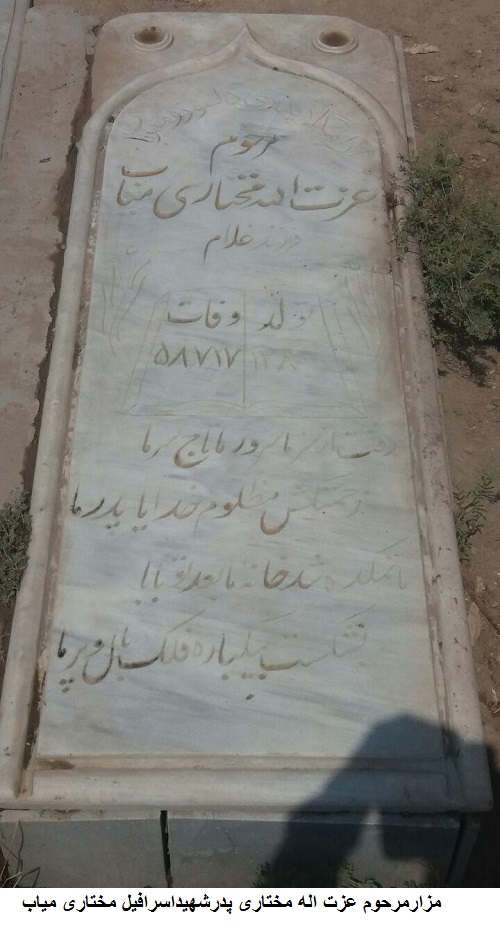 مرحوم
عزت اله مختاری میاب
فرزند غلام
تولد وفات
۵۸۷۱۷
رفت از سر ما سرور ما تاج سر ما
مظلوم خدایا پدر ما
ماتمکده شد خانه ما بعد تو بابا
بشکست بیکباره فلک بال و پر ما
مزارمرحوم عزت اله مختاری پدرشهیداسرافیل مختاری میاب